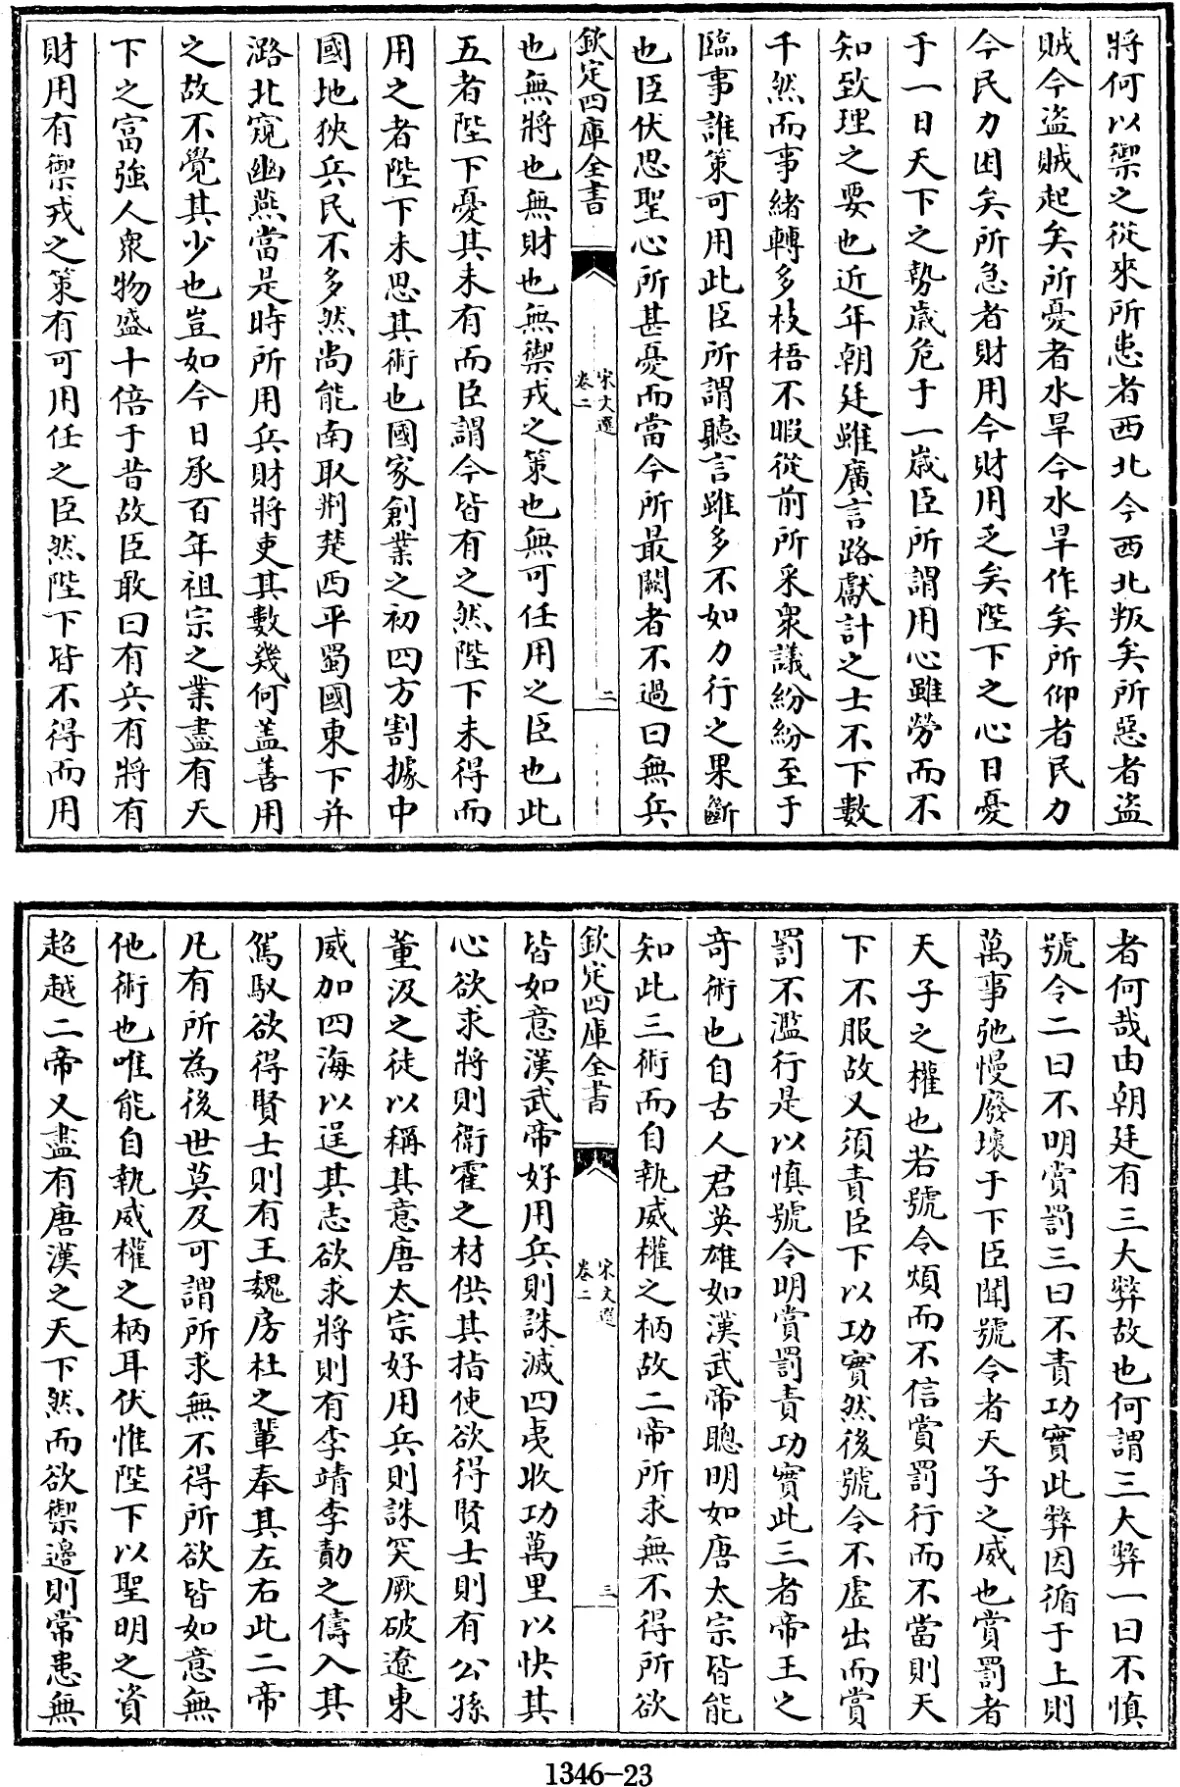 將何以禦之從來所患者西北今西北叛矣所惡者盜
賊今盜賊起矣所憂者水旱今水旱作矣所仰者民力
今民力困矣所急者財用今財用乏矣陛下之心日憂
于一日天下之勢歲危于一歲臣所謂用心雖勞而不
知致理之要也近年朝廷雖廣言路獻計之士不下數
千然而事緒轉多枝梧不暇從前所采衆議紛紛至于
臨事誰策可用此臣所謂聽言雖多不如力行之果斷
也臣伏思聖心所甚憂而當今所最闕者不過曰無兵
欽定四庫全書
宋文選
卷二
二
也無將也無財也無禦戎之策也無可任用之臣也此
五者陛下憂其未有而臣謂今皆有之然陛下未得而
用之者陛下未思其術也國家創業之初四方割據中
國地狹兵民不多然尚能南取荆楚西平蜀國東下并
潞北窺幽燕當是時所用兵財將吏其數幾何盖善用
之故不覺其少也豈如今日承百年祖宗之業盡有天
下之富強人衆物盛十倍于昔故臣敢曰有兵有將有
財用有禦戎之策有可用任之臣然陛下皆不得而用
者何哉由朝廷有三大弊故也何謂三大弊一曰不慎
號令二曰不明賞罰三曰不責功實此弊因循于上則
萬事弛慢廢壞于下臣聞號令者天子之威也賞罰者
天子之權也若號令煩而不信賞罰行而不當則天
下不服故又須責臣下以功實然後號令不虛出而賞
罰不濫行是以慎號令明賞罰責功實此三者帝王之
奇術也自古人君英雄如漢武帝聰明如唐太宗皆能
知此三術而自執威權之柄故二帝所求無不得所欲
欽定四庫全書
宋文選
卷二
三
皆如意漢武帝好用兵則誅滅四夷收功萬里以快其
心欲求將則衛霍之材供其指使欲得賢士則有公孫
董汲之徒以稱其意唐太宗好用兵則誅突厥破遼東
威加四海以逞其志欲求將則有李靖李勣之儔入其
駕馭欲得賢士則有王魏房杜之輩奉其左右此二帝
凡有所為後世莫及可謂所求無不得所欲皆如意無
他術也唯能自執威權之柄耳伏惟陛下以聖明之資
超越二帝又盡有唐漢之天下然而欲禦邊則常患無
1346-23